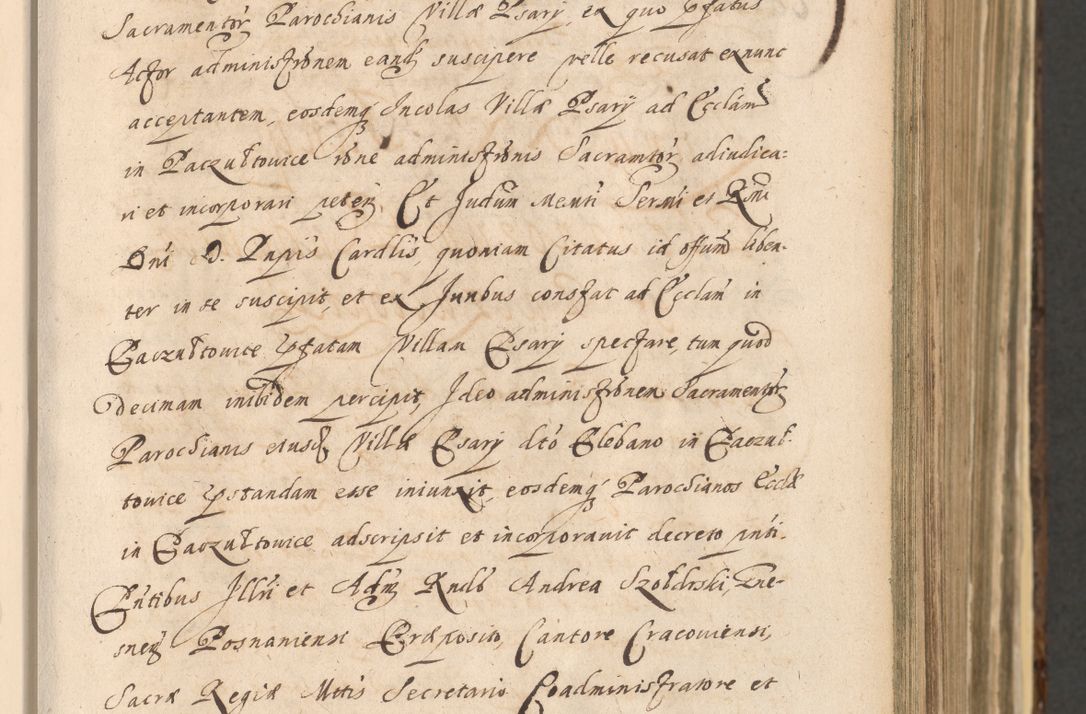 Sacramentor Parochianis Villæ Psary, ex quo pfatus
Actor administrõnem eand suscipere velle recusat exnunc
acceptantem, eosdemq Incolas Villæ Psary ad Ecclam
in Paczułtowice rõne administrõnis Sacramtor adiudica:
ri et incorporari peten. Et Iudicium Sermi et Rmi
Dni D. Papis Cardlis, quoniam Citatus id offum liben-
ter in se suscipit, et ex Iuribus constat ad Ecclam in
Paczułtowice pfatam Villam Psary spectare, tum quod
decimam inibidem percipit, Ideo administrõnem Sacramentor
Parochianis eiusd Villæ Psary dto Plebano in Paczuł-
towice pstandam esse iniunxit, eosdemq Parochianos Ecclæ
in Paczułtowice adscripsit et incorporauit decreto pnti.
Pntibus Illri et Adm Rndo Andrea Szołdrski, Gne-
snen Posnaniensi Præposito, Cantore Cracouiensi,
Sacræ Regiæ Mttis Secretario Coadministratore et